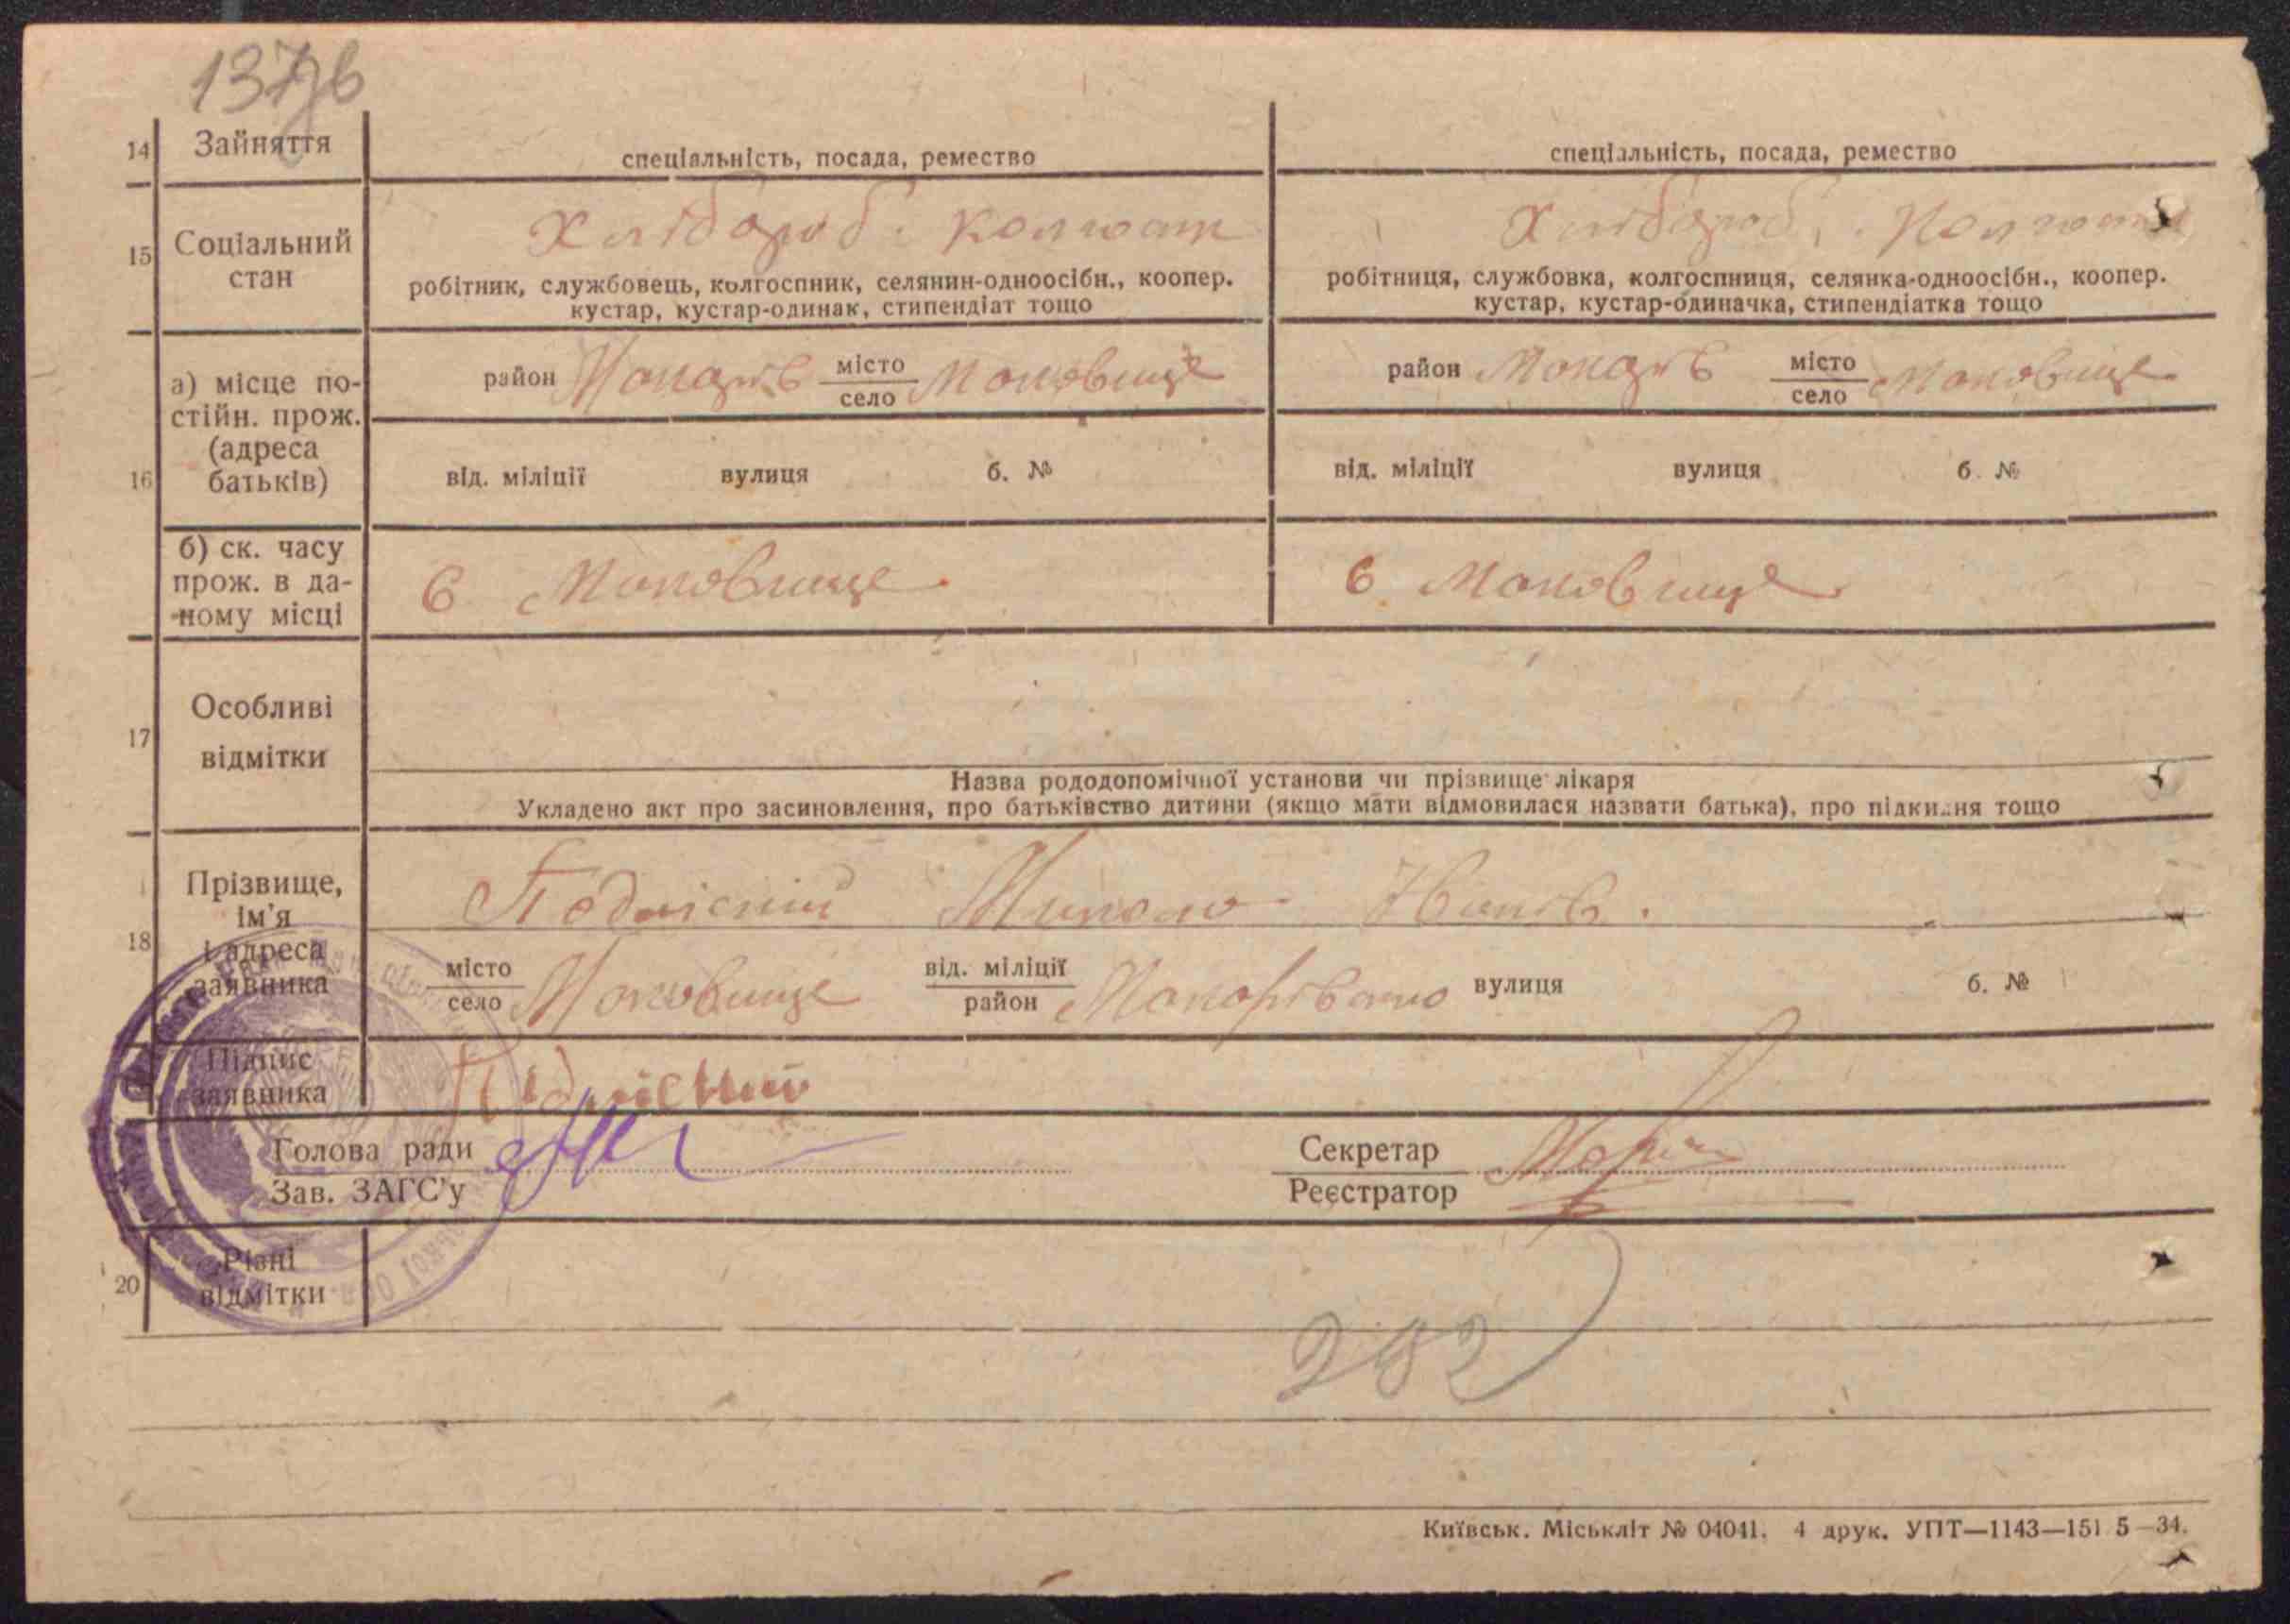 14 Зайняття
спеціальність, посада, ремество спеціальність, посада, ремество
15 Соціальний стан
Хлібороб. Колгосп Хлібороб. Колгосп
робітник, службовець, колгоспник, селянин-одноосібн., коопер. робітниця, службовка, колгоспниця, селянка-одноосібн., коопер.
кустар, кустар-одинак, стипендіат тощо кустар, кустар-одиначка, стипендіатка тощо
16
а) місце по-
стійн. прож.
(адреса
батьків)
район Макарів місто село Маковище район Макарів місто село Маковище
від. міліції вулиця б. № від. міліції вулиця б. №
б) ск. часу
прож. в да-
ному місці
в Маковище в Маковище
17 Особливі
відмітки
Назва рододопомічної установи чи прізвище лікаря
Укладено акт про засиновлення, про батьківство дитини (якщо мати відмовилася назвати батька), про підкидня тощо
18
Прізвище,
ім'я
і адреса
заявника
Микола Іванів.
місто село Маковище від. міліції район вулиця б. №
Підпис
заявника
Голова ради Секретар
Зав. ЗАГС'у Реєстратор
20 Різні
відмітки
Київськ. Міськліт № 04041. 4 друк. УПТ—1143—151 5—34.